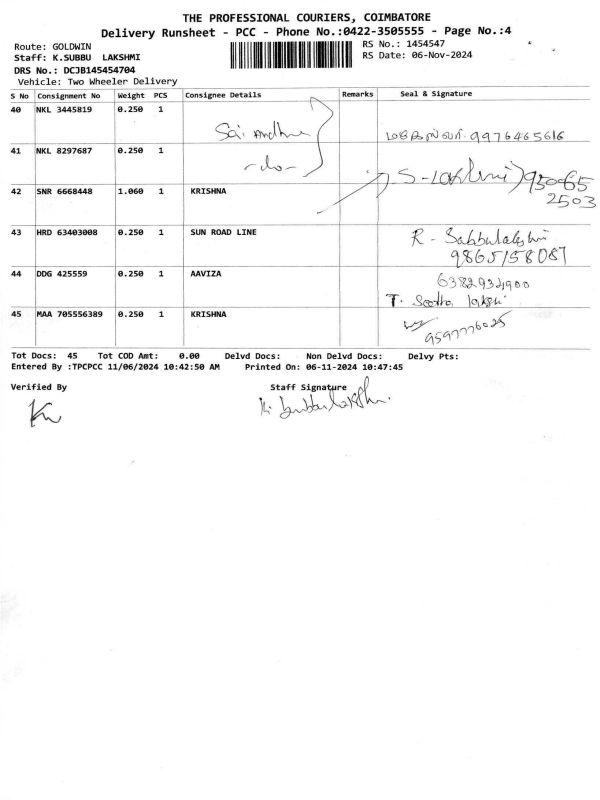 THE PROFESSIONAL COURIERS, COIMBATORE
Delivery Runsheet - PCC - Phone No.:0422-3505555 - Page No.:4
Route: GOLDWIN
Staff: K.SUBBU LAKSHMI
DRS No.: DCJB145454704
Vehicle: Two Wheeler Delivery
RS No.: 1454547
RS Date: 06-Nov-2024
S No Consignment No Weight PCS Consignee Details Remarks Seal & Signature
40 NKL 3445819 0.250 1 Sai Andhra 9976465616
41 NKL 8297687 0.250 1 -do-
42 SNR 6668448 1.060 1 KRISHNA S-Lakshmi 95006 65
2503
43 HRD 63403008 0.250 1 SUN ROAD LINE R - Subbulakshmi
9865158087
44 DDG 425559 0.250 1 AAVIZA 6382934900
T. Seetha lakshmi
45 MAA 705556389 0.250 1 KRISHNA 9597776025
Tot Docs: 45 Tot COD Amt: 0.00 Delvd Docs: Non Delvd Docs: Delvy Pts:
Entered By :TPCPCC 11/06/2024 10:42:50 AM Printed On: 06-11-2024 10:47:45
Verified By Staff Signature
K. Subbulakshmi